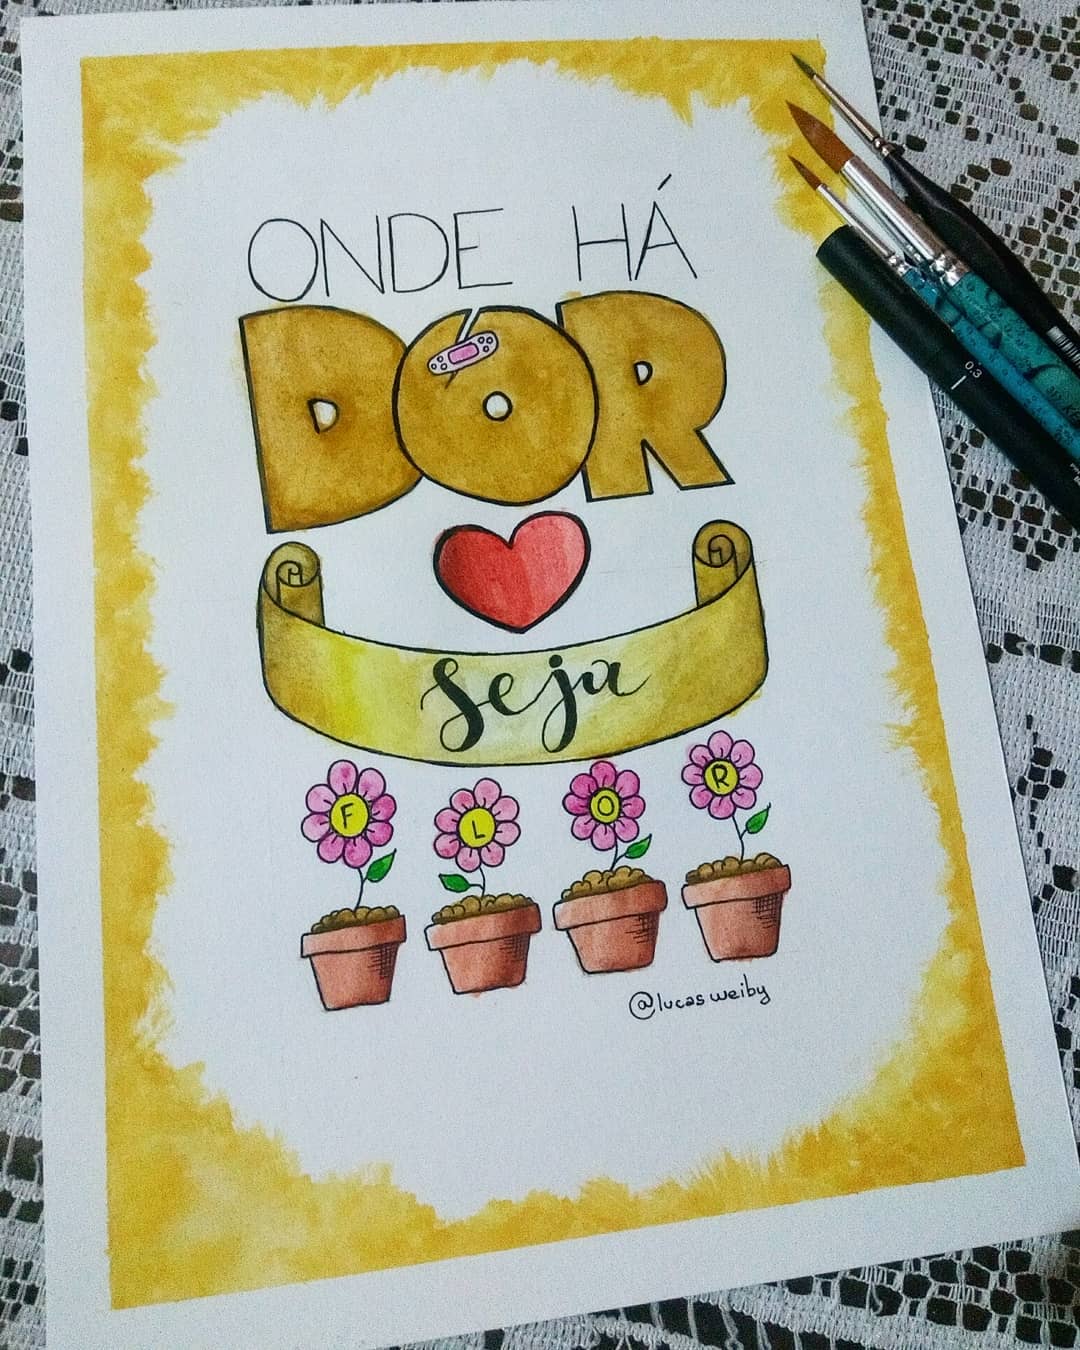 ONDE HÁ
DOR
Seja
FLOR
@lucasweiby
0.3